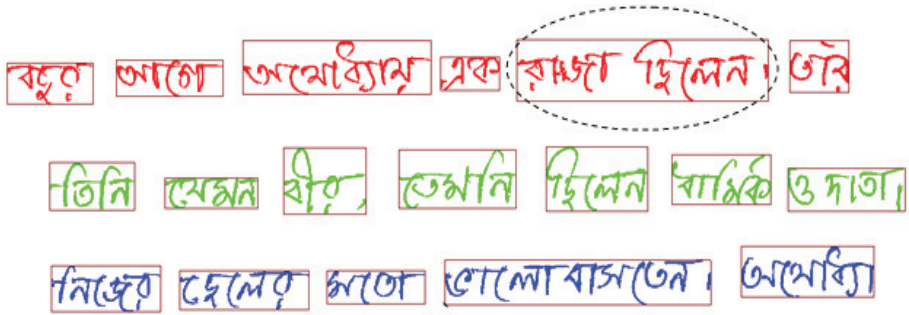 বছর আগে অযোধ্যায় এক রাজা ছিলেন। তাঁর
তিনি যেমন বীর, তেমনি ছিলেন ধার্মিক ও দাতা।
নিজের ছেলের মতো ভালোবাসতেন। অযোধ্যা